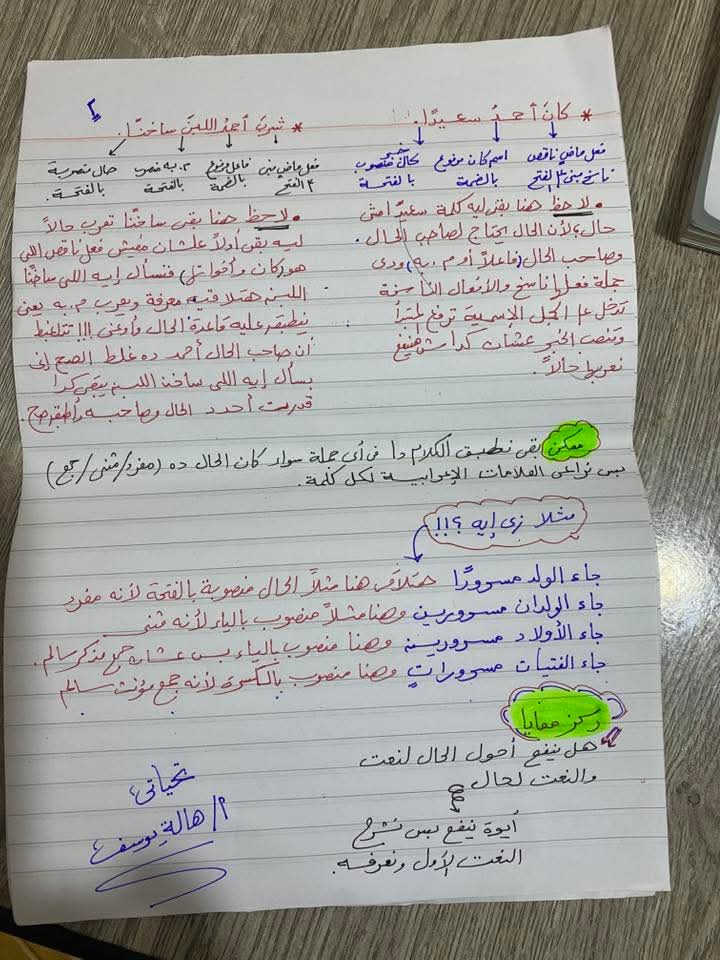 ٢
* كانَ أحمدُ سعيدًا.
فعل ماضٍ ناقص ناسخ مبنى على الفتح
اسم كان مرفوع بالضمة
خبر كان منصوب بالفتحة
• لاحظ هنا بقى ليه كلمة سعيدًا مش
حال؟ لأن الحال يحتاج لصاحب الحال
وصاحب الحال (فاعلاً أو م. به) ودى
جملة فعلها ناسخ والأفعال الناسخة
تدخل على الجمل الإسمية ترفع المبتدأ
وتنصب الخبر عشان كدا مش هينفع
نعربها حالاً.
* شربَ أحمدُ اللبنَ ساخنًا.
فعل ماضٍ مبنى على الفتح
فاعل مرفوع بالضمة
م. به منصوب بالفتحة
حال منصوبة بالفتحة.
• لاحظ هنا بقى ساخنًا تعرب حالاً
ليه بقى أولاً علشان مفيش فعل ناقص اللى
هو (كان وأخواتها) فنسأل إيه اللى ساخنًا
اللبن هتلاقيه معرفة ويعرب م. به يعنى
ينطبق عليه قاعدة الحال فأوعى !!! تتلغبط
أن صاحب الحال أحمد ده غلط الصح إنى
بسأل إيه اللى ساخن اللبن يبقى كدا
قدرت أحدد الحال وصاحبه وأطبق صح.
ممكن بقى نطبق الكلام دا فى أى جملة سواء كان الحال ده (مفرد/مثنى/جمع)
بس نراعى العلامات الإعرابية لكل كلمة.
مثلا زى إيه ؟!!!
جاء الولد مسرورًا هتلاقى هنا مثلاً الحال منصوبة بالفتحة لأنه مفرد
جاء الولدان مسرورين وهنا مثلاً منصوب بالياء لأنه مثنى
جاء الأولاد مسرورين وهنا منصوب بالياء بس عشان جمع مذكر سالم.
جاء الفتيات مسروراتٍ وهنا منصوب بالكسرة لأنه جمع مؤنث سالم
ركز معايا
هل ينفع أحول الحال لنعت
والنعت لحال
أيوة ينفع بس نشرح
النعت الأول ونعرفه.
تحياتى،
أ/ هالة يوسف